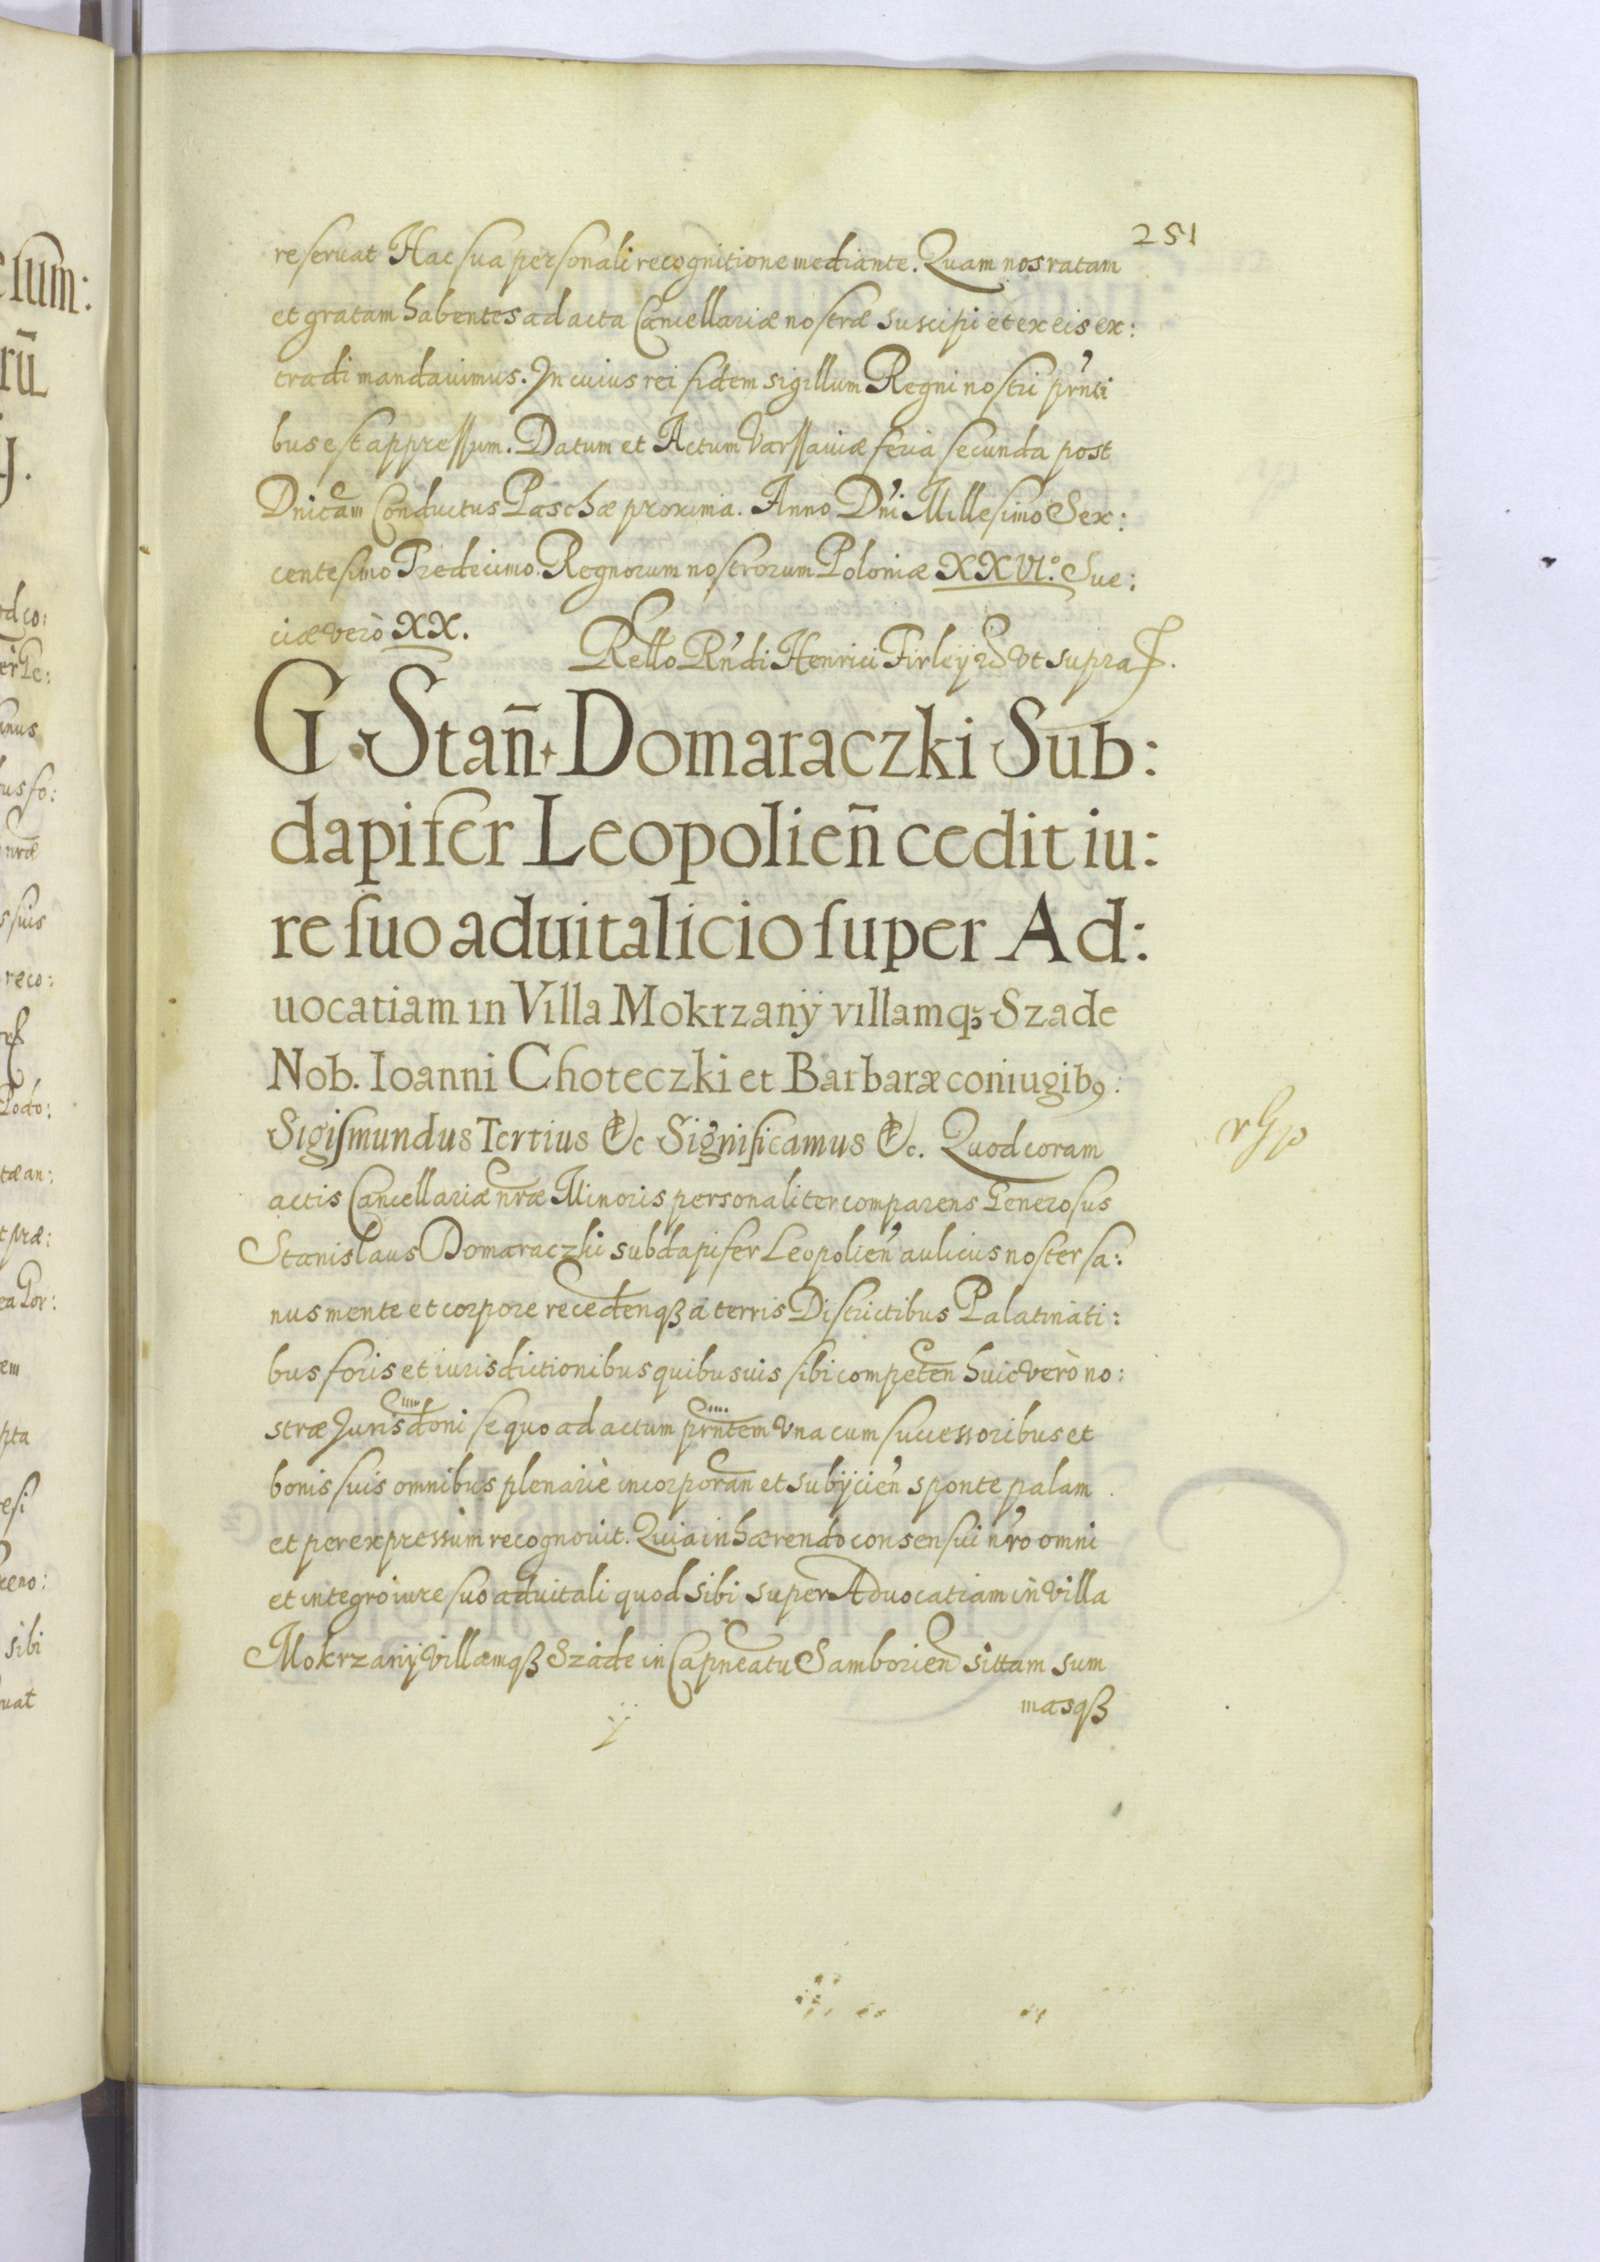 251
reseruat Hac sua personali recognitione mediante. Quam nos ratam
et gratam habentes ad acta Cancellariæ nostræ suscipi et ex eis ex:
tradi mandauimus. In cuius rei fidem sigillum Regni nostri pr̃nti
bus est appressum. Datum et Actum Varssauiæ feria secunda post
Dnicam Conductus Paschæ proxima. Anno Dni Millesimo Sex:
centesimo Tredecimo. Regnorum nostrorum Poloniæ XXVI.º Sue:
ciæ verò XX.
Rello Rndi Henrici Firleÿ &c Vt supra
G. Stañ. Domaraczki Sub:
dapifer Leopolieñ cedit iu:
re suo aduitalicio super Ad:
uocatiam in Villa Mokrzanÿ villamq; Szade
Nob. Ioanni Choteczki et Barbaræ coniugib9:
Sigismundus Tertius &c Significamus &c. Quod coram
actis Cancellariæ nræ Minoris personaliter comparens Generosus
Stanislaus Domaraczki subdapifer Leopolien aulicus noster sa:
nus mente et corpore recedenqꝫ a terris Districtibus Palatinati:
bus foris et iurisdictionibus quibusuis sibi competen huic verò no:
stræ Jurisdoni se quo ad actum prntem vna cum successoribus et
bonis suis omnibus plenariè incorporan et subÿcien sponte palam
et per expressum recognouit. Quia inhærendo consensui nro omni
et integro iure suo aduitali quod sibi super Aduocatiam in villa
Mokrzanÿ villamqꝫ Szade in Capneatu Samborien sittam sum
masqꝫ